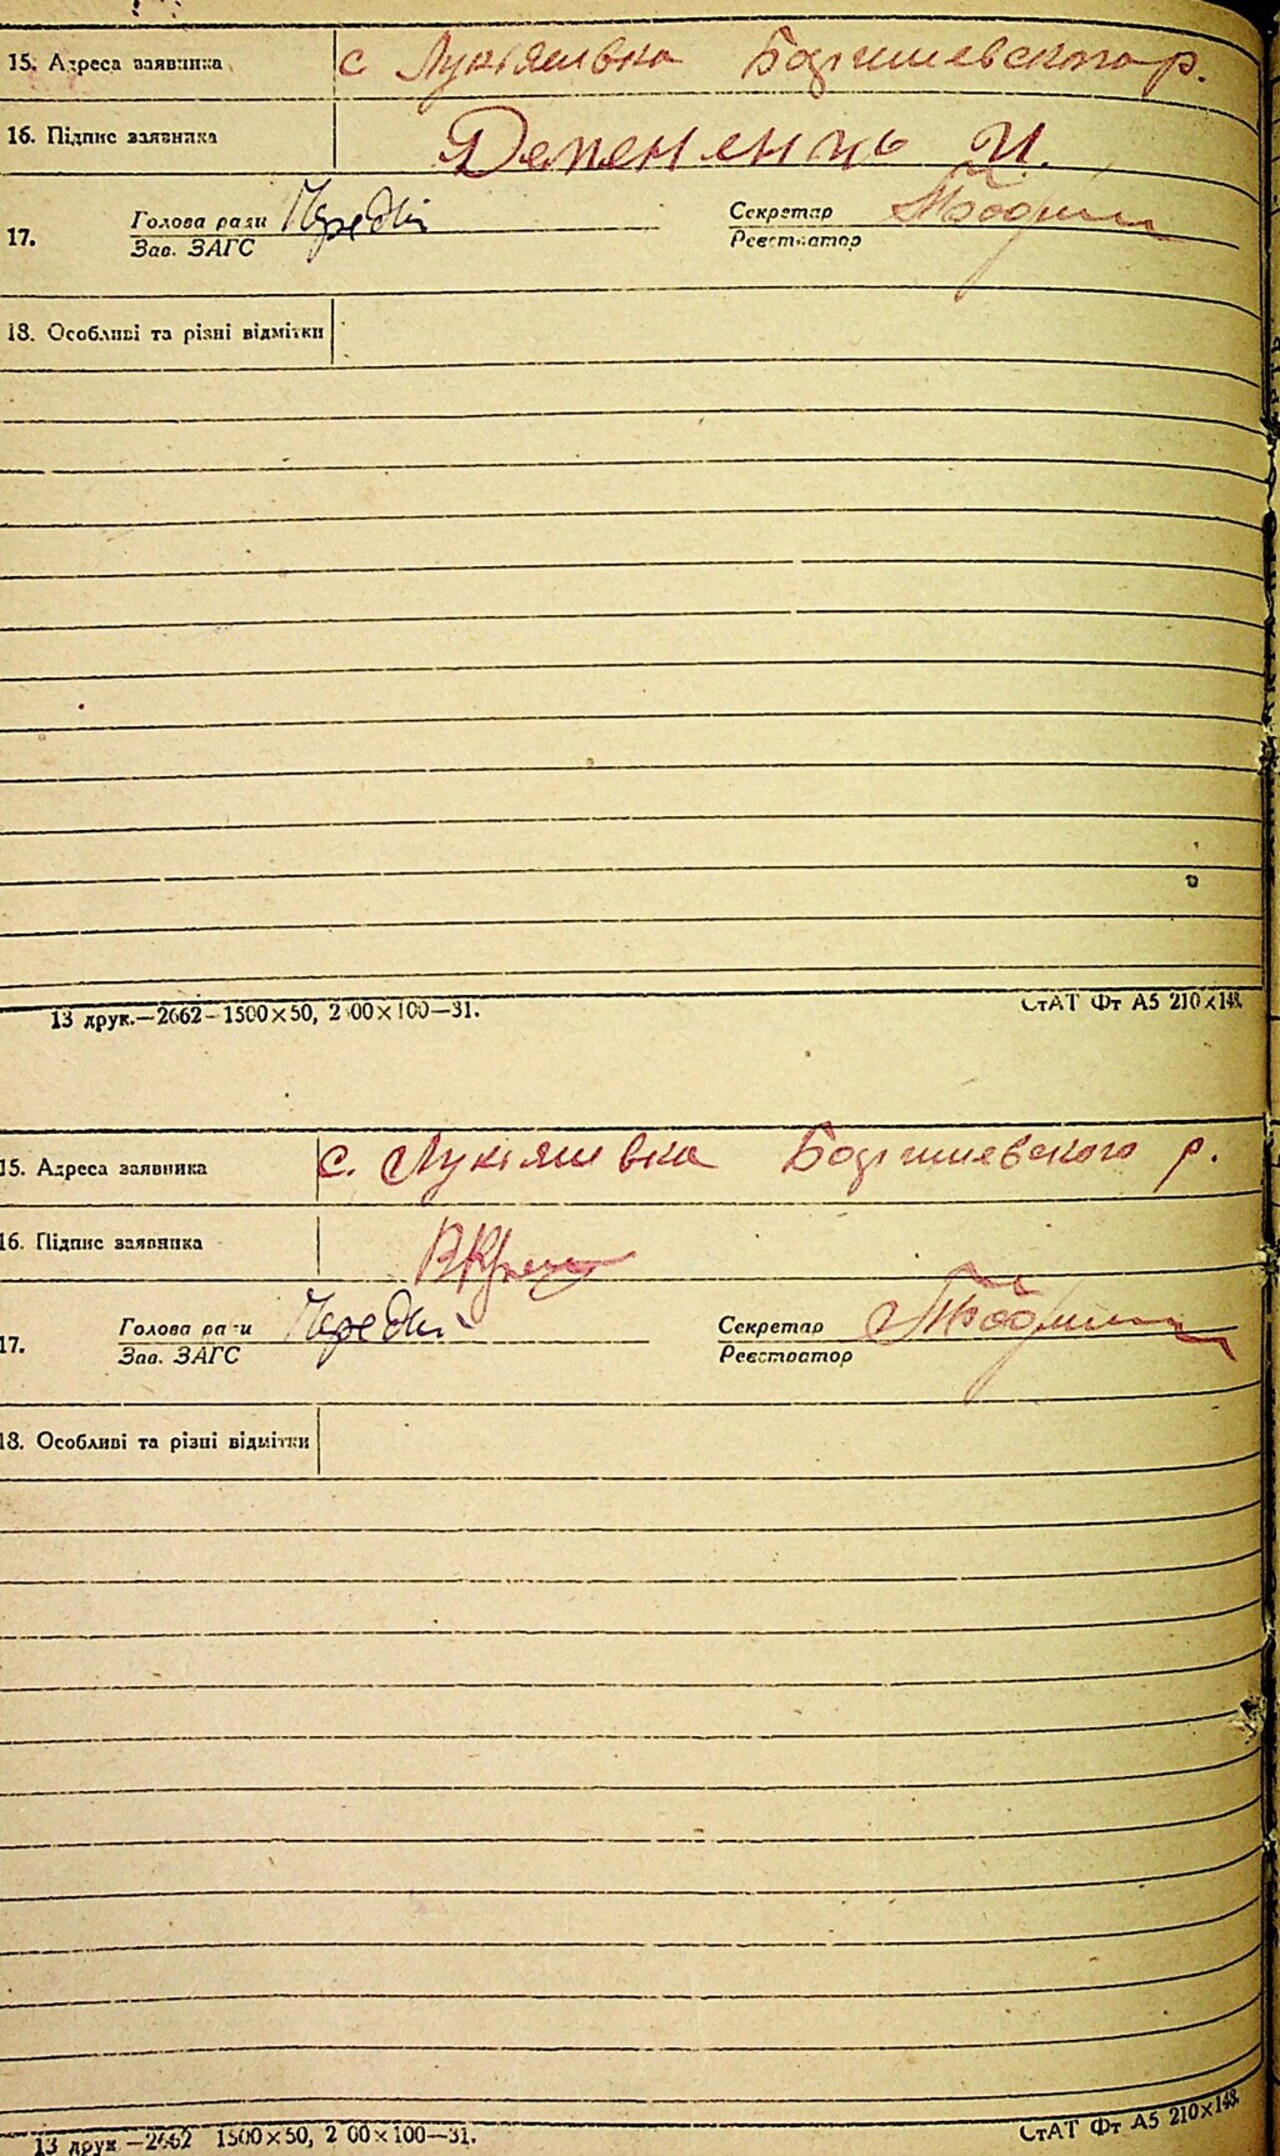 15. Адреса заявника с Лукіяшівка р.
16. Підпис заявника И.
Голова ради Передній Секретар
17.
Зав. ЗАГС Реєстратор
18. Особливі та різні відмітки
13 друк.—2662—1500×50, 2 00×100—31. СтАТ Фт А5 210×148.
15. Адреса заявника с. Лукіяшівка р.
16. Підпис заявника
Голова ради Передній Секретар
17.
Зав. ЗАГС Реєстратор
18. Особливі та різні відмітки
13 друк —2662 1500×50, 2 00×100—31. СтАТ Фт А5 210×148.